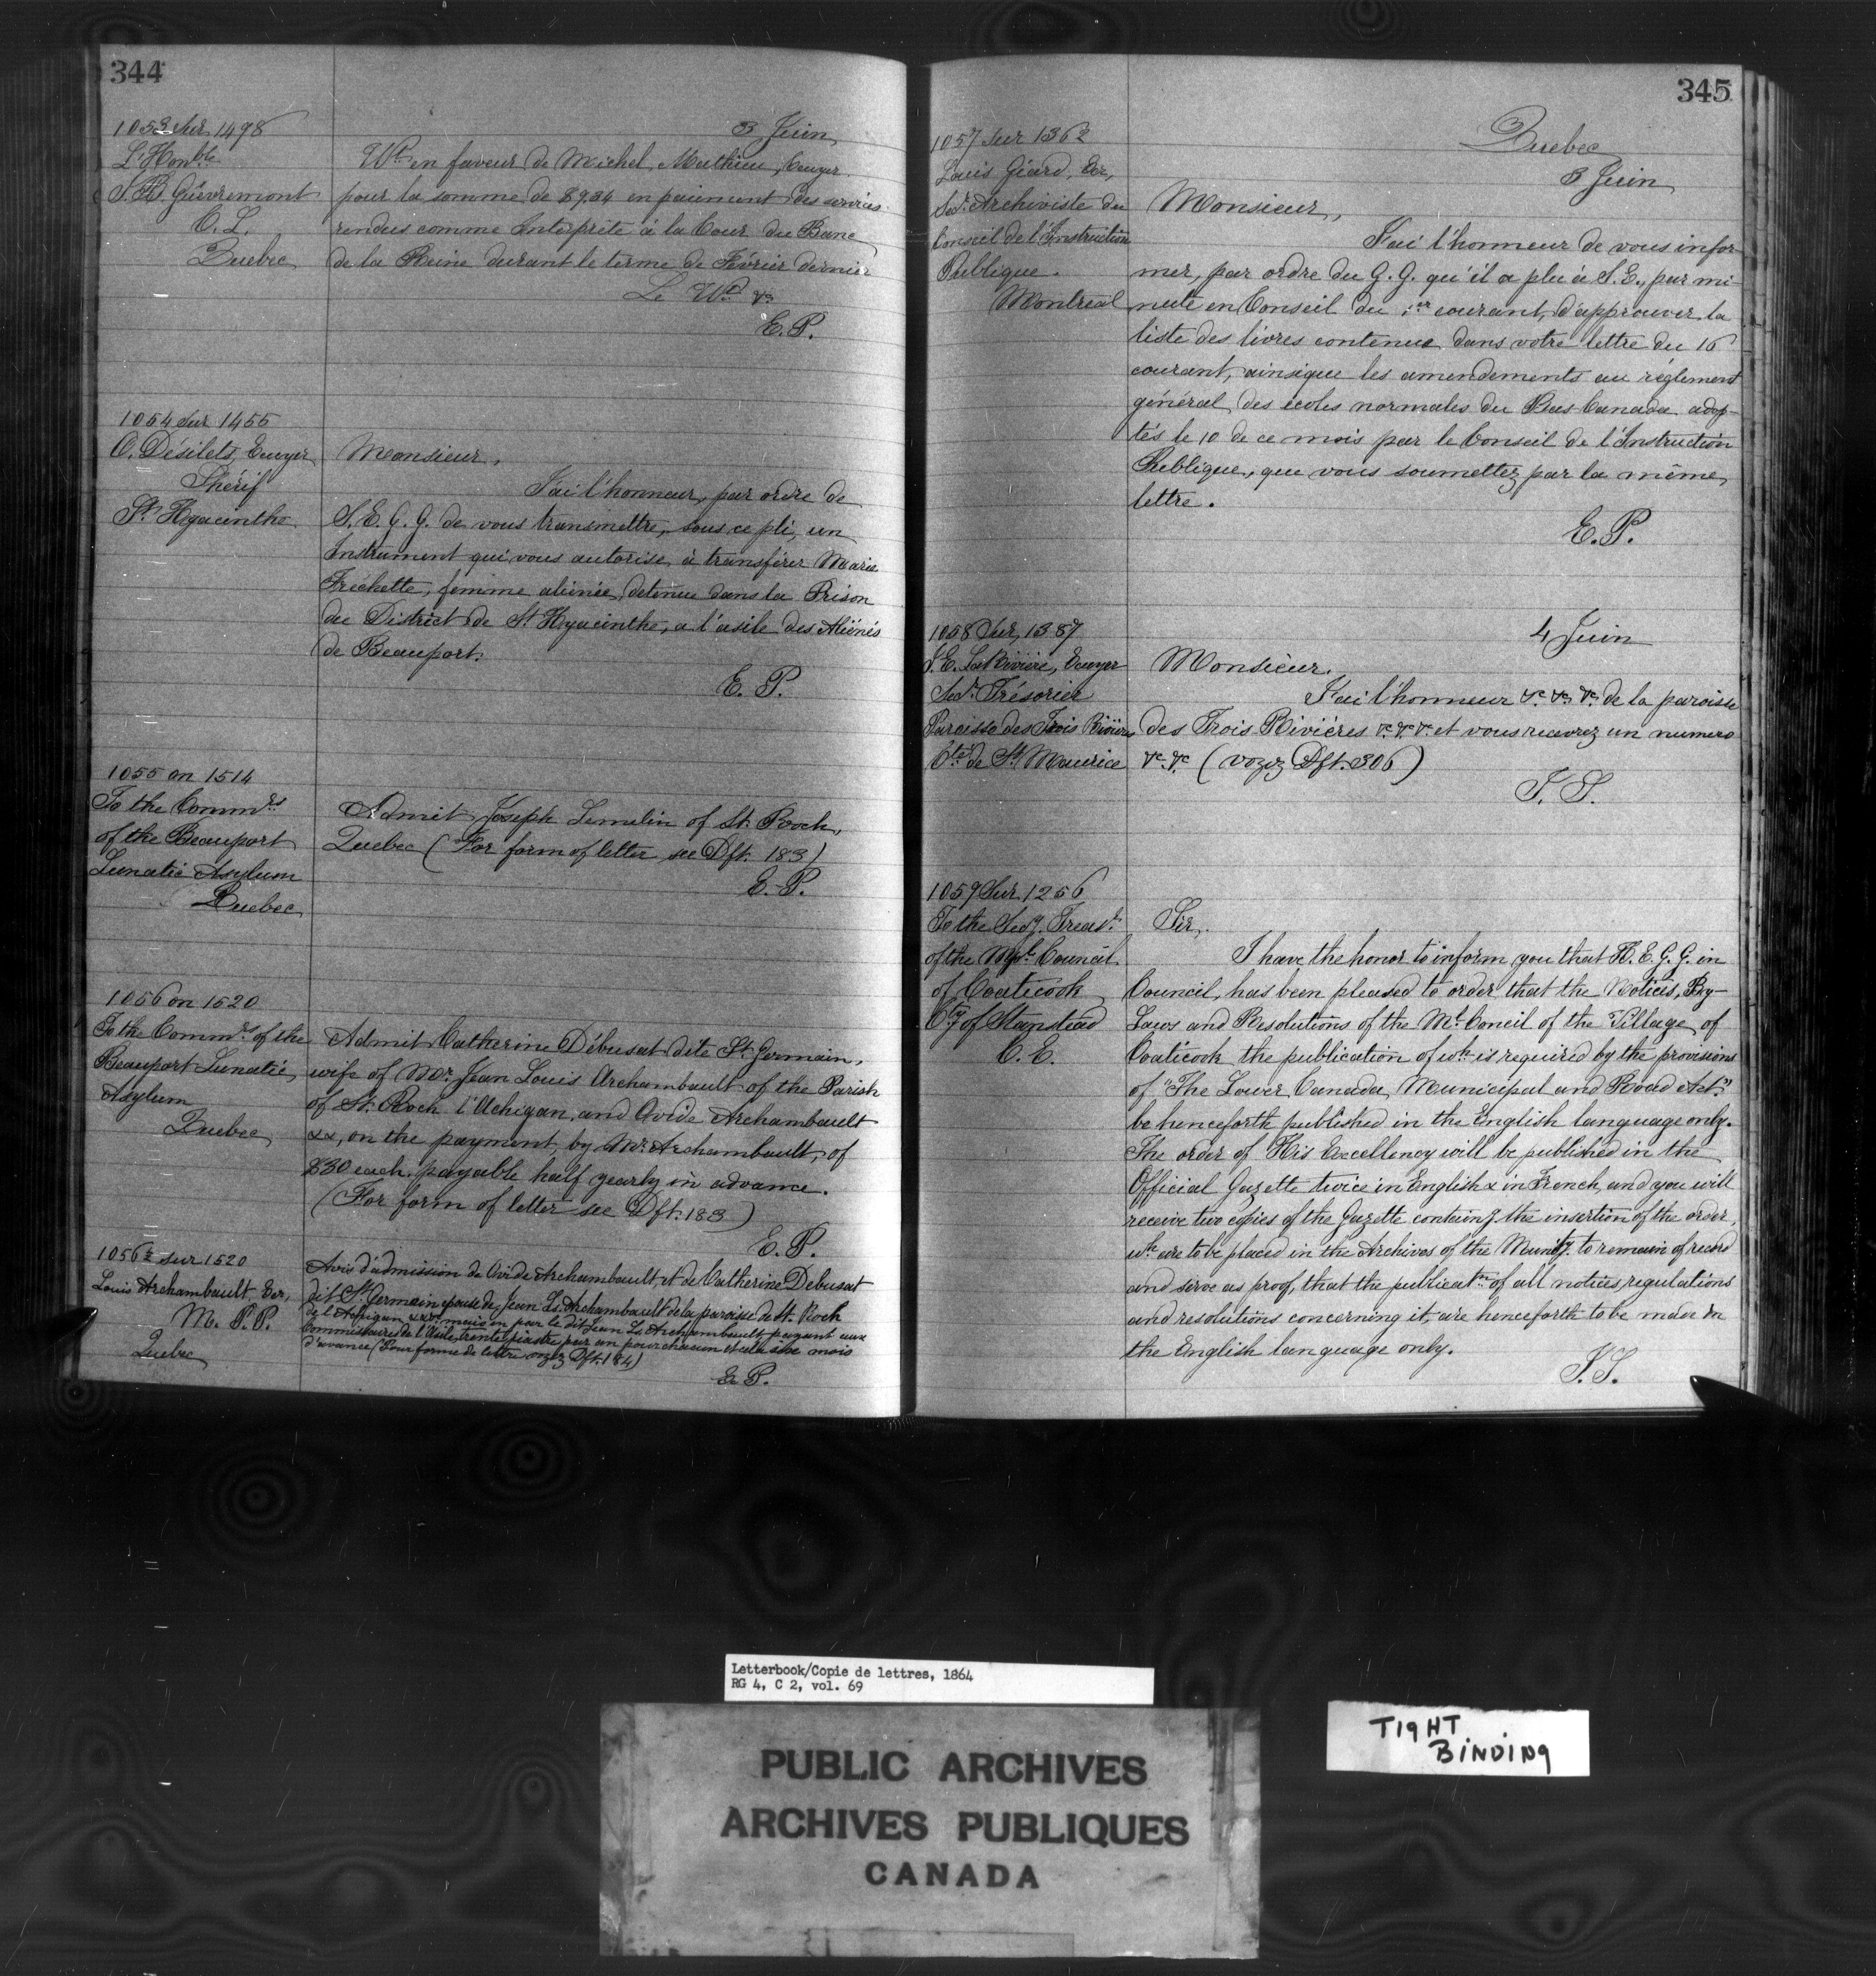 344
1053 Sur 1498
L'Honble
J. B. Guèvremont
C. L.
Quebec
3 Juin
Wt en faveur de Michel Mathieu, Ecuyer
pour la somme de $9.34 en paiement des services
rendus comme Interprête à la Cour du Banc
de la Reine durant le terme de Février dernier
Le Wt &c
E. P.
1054 Sur 1455
O. Désilets, Ecuyer
Shérif
St Hyacinthe
Monsieur,
J'ai l'honneur, par ordre de
S. E. G. G. de vous transmettre, sous ce pli, un
Instrument qui vous autorise à transférer Marie
Frechette, femme aliénée, detenue dans la Prison
du District de St Hyacinthe, a l'asile des Aliénés
de Beauport.
E. P.
1055 on 1514
To the Commrs
of the Beauport
Lunatic Asylum
Quebec
Admit Joseph Lemelin of St. Roch,
Quebec (For form of letter see Dft. 183)
E. P.
1056 on 1520
To the Commrs of the
Beauport Lunatic
Asylum
Quebec
Admit Catherine Débusat dite St Germain,
wife of Mr. Jean Louis Archambault of the Parish
of St. Roch l'Achigan, and Ovide Archambault
xx, on the payment, by Mr. Archambault, of
$30 each payable half yearly in advance.
(For form of letter see Dft. 183)
E. P.
1056½ sur 1520
Louis Archambault Ecr,
M. P. P.
Quebec
Avis d'admission de Ovide Archambault, et de Catherine Debusat
dit St Germain epouse de Jean Ls Archambault de la paroisse de St. Roch
de l'Achigan, mais en par le dit Jean Ls Archambault payant aux
Commissaires de l'Asile, trente piastre par an pour chacun et cela six mois
d'avance (Pour forme de lettre voyez Dft. 184)
E. P.
345
1057 Sur 1362
Louis Giard, Ecr,
Secr. Archiviste du
Conseil de l'Instruction
Publique.
Montreal
Quebec
3 Juin
Monsieur,
J'ai l'honneur de vous infor-
mer, par ordre du G. G. qu'il a plu à S. E., par mi-
nute en Conseil du 1er courant, d'approuver la
liste des livres contenue dans votre lettre du 16
courant, ainsique les amendements au réglement
général des écoles normales du Bas-Canada adop-
tés le 10 de ce mois par le Conseil de l'Instruction
Publique, que vous soumettez par la même
lettre.
E. P.
1058 Sur 1387
S. E. LaRivière, Ecuyer
Secr. Trésorier
Paroisse des Trois Rivières
Cté de St Maurice
4 Juin
Monsieur.
J'ai l'honneur &c &c &c de la paroisse
des Trois Rivières &c &c &c et vous recevrez un numero
&c &c (voyez Dft. 306)
T. S.
1059 Sur 1256
To the Secy. Treasr.
of the Mpl Council
of Coaticook
Cty of Stanstead
C. E.
Sir,
I have the honor to inform you that H. E. G. G. in
Council, has been pleased to order that the Notices, By-
Laws and Resolutions of the Ml Concil of the Village of
Coaticook the publication of wh is required by the provisions
of "The Lower Canada Municipal and Road Act,"
be henceforth published in the English language only.
The order of His Excellency will be published in the
Official Gazette twice in English & in French, and you will
receive two copies of the Gazette containg the insertion of the order,
wh are to be placed in the Archives of the Munity. to remain of record
and serve as proof, that the publicatn of all notices, regulations
and resolutions concerning it, are henceforth to be made in
the English language only.
T. S.
Letterbook/Copie de lettres, 1864
RG 4, C 2, vol. 69
PUBLIC ARCHIVES
ARCHIVES PUBLIQUES
CANADA
TIGHT
BINDING